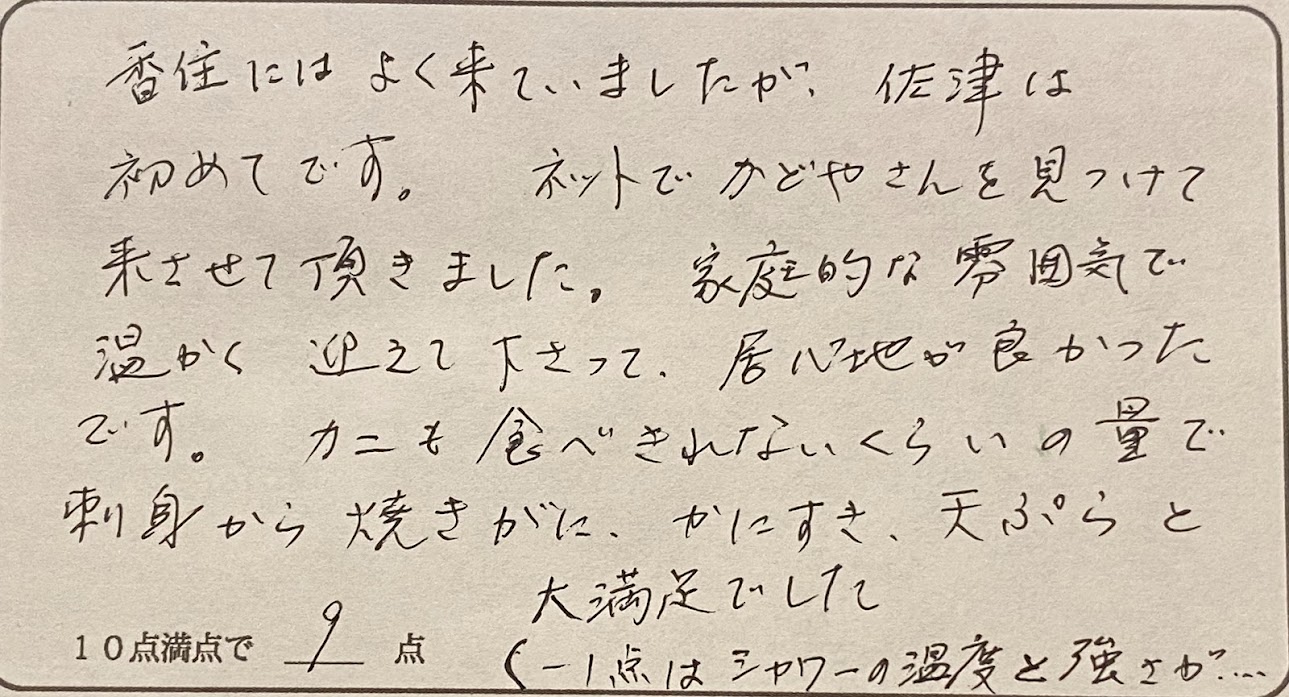 香住にはよく来ていましたが、佐津は
初めてです。 ネットでかどやさんを見つけて
来させて頂きました。 家庭的な雰囲気で
温かく 迎えて下さって、居心地が良かった
です。 カニも食べきれないくらいの量で
刺身から焼きがに、かにすき、天ぷらと
大満足でした
10点満点で 9 点
(-1点はシャワーの温度と強さが…